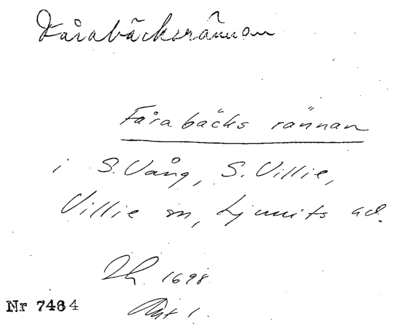 Fårabäcksrännan
Fårabäcks rännan
i S. Vång, S. Villie,
Villie sn, Ljunits hd.
Lh. 1698
Akt 1.
Nr 7484